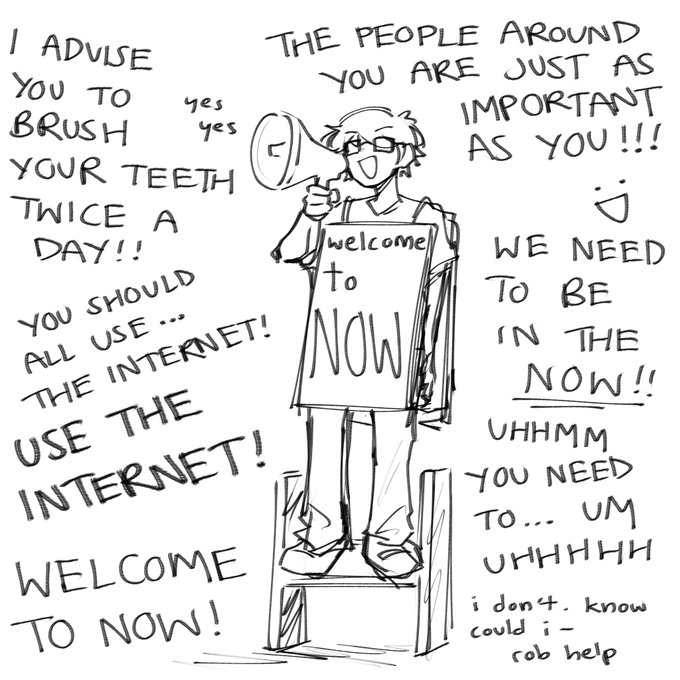 I ADVISE
YOU TO
BRUSH
YOUR TEETH
TWICE A
DAY!!
yes
yes
THE PEOPLE AROUND
YOU ARE JUST AS
IMPORTANT
AS YOU!!!
:D
welcome
to
NOW
YOU SHOULD
ALL USE...
THE INTERNET!
USE THE
INTERNET!
WE NEED
TO BE
IN THE
NOW!!
WELCOME
TO NOW!
UHHMM
YOU NEED
TO... UM
UHHHHH
i don't. know
could i-
rob help